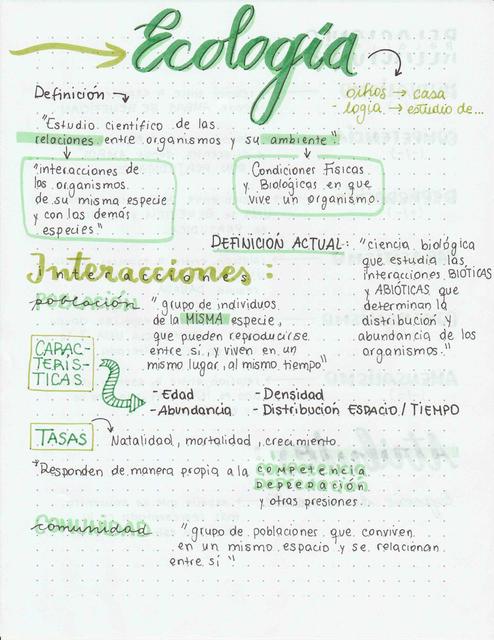 Ecología
oikos → casa
- logia → estudio de...
Definición
"Estudio científico de las
relaciones entre organismos y su ambiente"
"interacciones de
los organismos
de su misma especie
y con las demás
especies"
Condiciones Físicas
y Biológicas en que
vive un organismo.
DEFINICIÓN ACTUAL: "ciencia biológica
que estudia las
interacciones BIÓTICAS
y ABIÓTICAS que
determinan la
distribución y
abundancia de los
organismos."
Interacciones:
población
"grupo de individuos
de la MISMA especie,
que pueden reproducirse
entre sí, y viven en un
mismo lugar, al mismo tiempo"
CARAC-
TERÍS-
TICAS
- Edad
- Abundancia
- Densidad
- Distribución ESPACIO / TIEMPO
TASAS
Natalidad, mortalidad, crecimiento.
*Responden de manera propia a la competencia
DEPREDACIÓN
y otras presiones.
comunidad
"grupo de poblaciones que conviven
en un mismo espacio y se relacionan
entre sí"